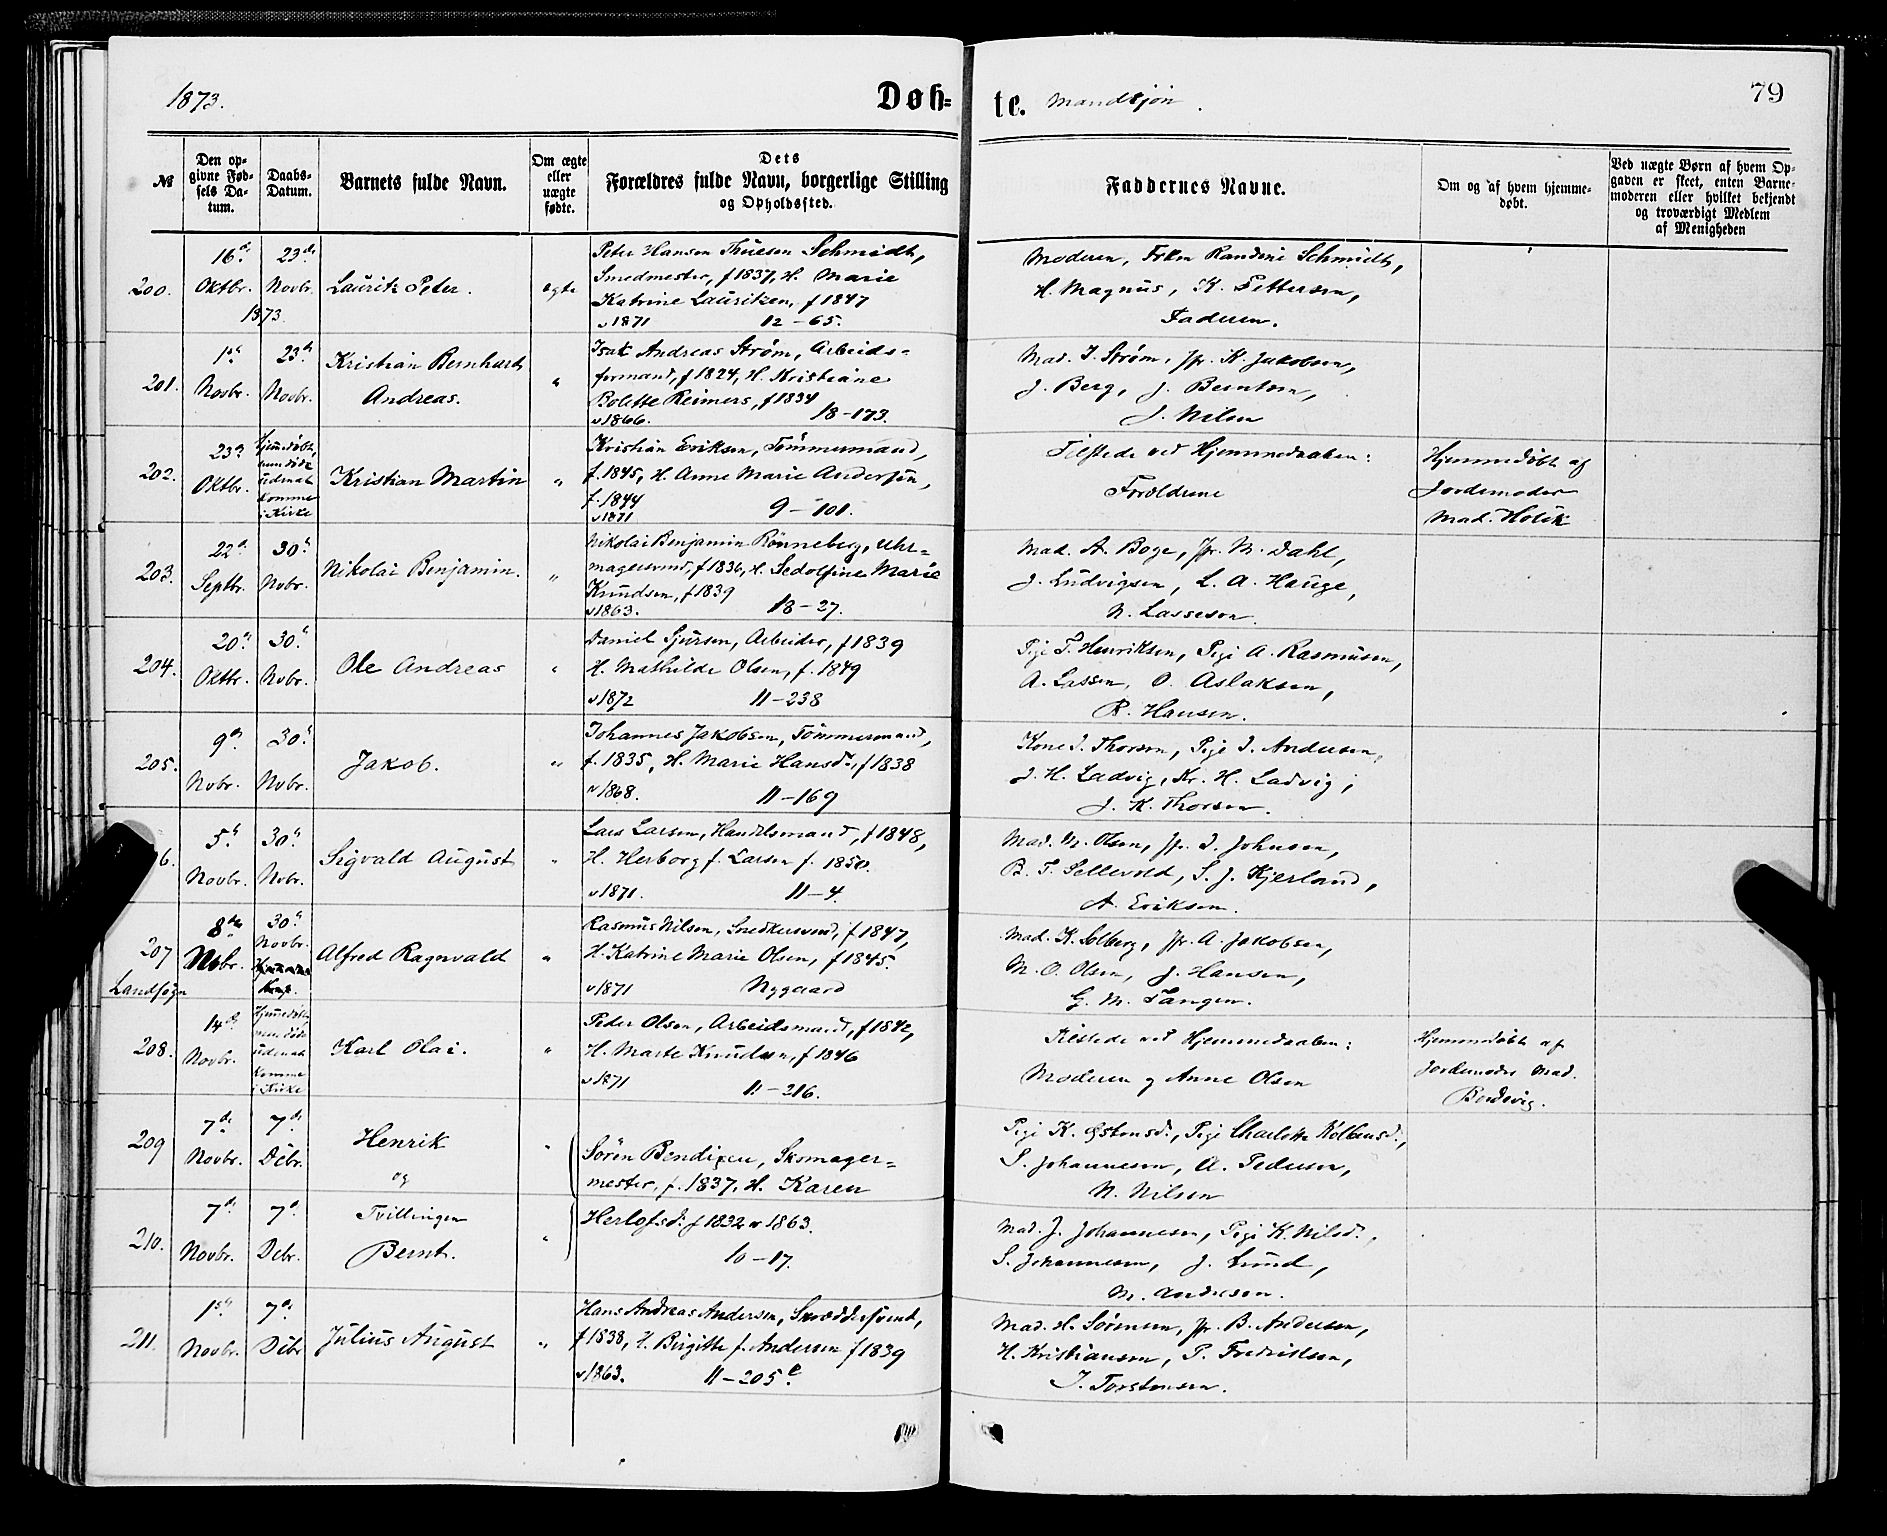 1873.
Døb-
te. Mandkjøn.
79
№
Den op-
givne Fød-
sels Da-
tum.
Daabs-
Datum.
Barnets fulde Navn.
Om ægte
eller
uægte
fødte.
Dets
Forældres fulde Navn, borgerlige Stilling
og Opholdssted.
Faddernes Navne.
Om og af hvem hjemme-
døbt.
Ved uægte Børn af hvem Op-
gaven er skeet, enten Barne-
moderen eller hvilket bekjendt
og troværdigt Medlem
af Menigheden
200.
16de
Oktbr.
1873.
23de
Novbr.
Lauritz Peter.
ægte
Peter Hansen Thuesen Schmidt,
Smedmester, f 1837, H. Marie
Katrine Lauritzen, f 1847
v 1871 12-65.
Moderen, Frkn Randine Schmidt,
H. Magnus, K. Pettersen,
Faderen.
201.
1ste
Novbr.
23de
Novbr.
Kristian Bernhard
Andreas.
"
Isak Andreas Strøm, Arbeids-
formand, f 1824, H. Kristiane
Bolette Reimers, f 1834
v 1866. 18-173.
Mad. I. Strøm, Jfr. K. Jakobsen,
J. Berg, J. Berntsen,
J. Nilsen
202.
23de
Oktbr.
Hjemmedøbt,
men døde
uden at
komme
i Kirke
Kristian Martin
"
Kristian Eriksen, Tømmermand,
f. 1845, H. Anne Marie Andersen,
f. 1844
v 1871 9-101.
Tilstede ved Hjemmedaaben:
Forældrene
Hjemmedøbt af
Jordemoder
Mad. Holck
203.
22de
Septbr.
30te
Nvbr.
Nikolai Benjamin.
"
Nikolai Benjamin Rønneberg, Uhr-
magersvend, f 1836, H. Sedolfine Marie
Knudsen, f 1839
v 1863. 18-27.
Mad. A. Boge, Jfr. M. Dahl,
J. Ludvigsen, L. A. Hauge,
N. Lassesen.
204.
20de
Oktbr.
30te
Nvbr.
Ole Andreas
"
Daniel Sjursen, Arbeider, f 1839
H. Mathilde Olsen, f. 1849
v 1872 11-238
Pige T. Henriksen, Pige A. Rasmussen,
A. Lassen, O. Aslaksen,
R. Hansen.
205.
9de
Nvbr.
30te
Nvbr.
Jakob.
"
Johannes Jakobsen, Tømmermand,
f. 1835, H. Marie Hansd., f 1838
v 1868. 11-169
Kone I. Thorsen, Pige I. Andersen,
J. H. Ladvig, Kr. H. Ladvig,
J. K. Thorsen.
6.
5te
Novbr.
30te
Nvbr.
Sigvald August
"
Lars Larsen, Handelsmand, f 1848,
H. Herborg f. Larsen f. 1850.
v 1871. 11-4.
Mad. M. Olsen, Jfr. I. Johnsen,
B. T. Sellevold, S. J. Kjerland,
A. Eriksen.
207
Landsogn
8de
Nvbr.
30te
Novbr.
Alfred Ragnvald
"
Rasmus Nilsen, Snedkersvend, f 1847,
H. Katrine Marie Olsen, f 1845.
v 1871 Nygaard
Mad. K. Solberg, Jfr. A. Jakobsen,
M. O. Olsen, J. Hansen,
G. M. Tangen.
208.
14de
Novbr.
Hjemmedøbt,
men døde
uden at
komme
i Kirke
Karl Olai.
"
Peder Olsen, Arbeidsmand, f 1842,
H. Marte Knudsen, f 1846
v 1871 11-216.
Tilstede ved Hjemmedaaben:
Moderen og Anne Olsen
Hjemmedøbt af
Jordemoder Mad.
Bredvig.
209
7de
Novbr.
7de
Debr.
Henrik
og
"
Søren Bendixen, Skomager-
mester, f. 1837, H. Karen
Pige K. Østensd., Pige Charlotte Kolbensd.,
S. Johannesen, A. Pedersen,
N. Nilsen
210.
7de
Novbr.
7de
Debr.
Tvillingen
Bernt.
"
Herlofsd. f 1832 v 1863.
10-17.
Mad. J. Johannesen, Pige K. Nilsd.,
S. Johannesen, J. Lund,
M. Andersen.
211.
1ste
Novbr.
7de
Debr
Julius August
"
Hans Andreas Andersen, Skræddersvend,
f 1838, H. Birgitte f. Andersen f 1839
v 1863. 11-205 c.
Mad. H. Sørensen, Jfr. B. Andersen,
H. Kristiansen, P. Fredriksen,
I. Torstensen.